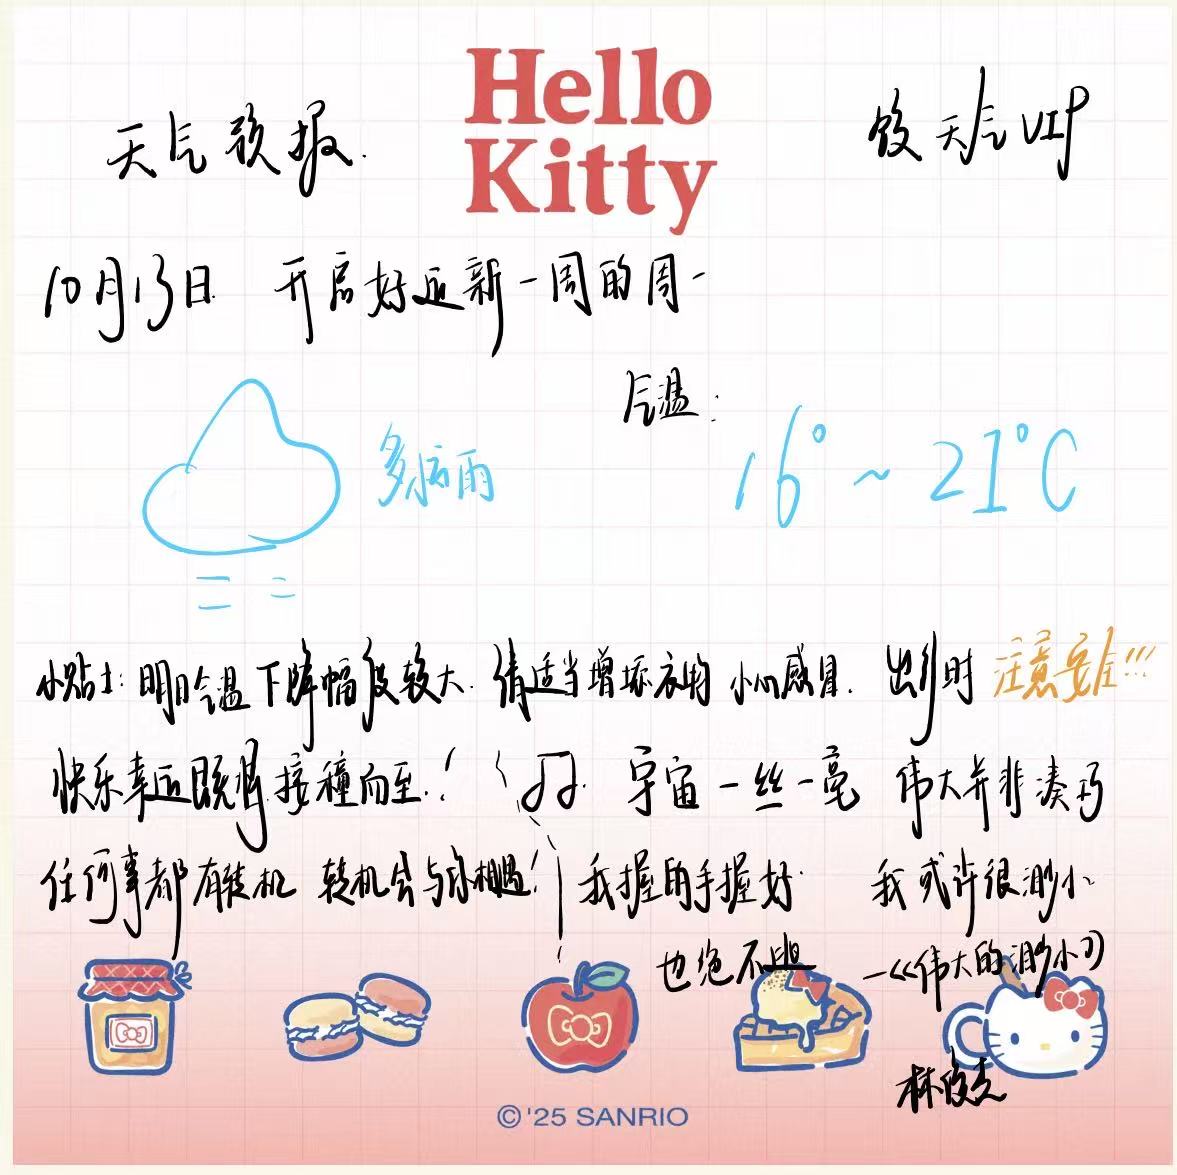 Hello
Kitty
天气预报.
天气VIP
10月13日 开启好运新一周的周一
气温:
多云 雨
16°~21°C
小贴士:明日气温下降幅度较大.请适当增添衣物 小心感冒.出行时 注意安全!!!
快乐幸运既将接種而至.! 宇宙一丝一毫 伟大并非凑巧
任何事都有转机 转机会与你相遇! 我握的手握好 我或许很渺小
也绝不逃 —《伟大的渺小》
林俊杰
©'25 SANRIO